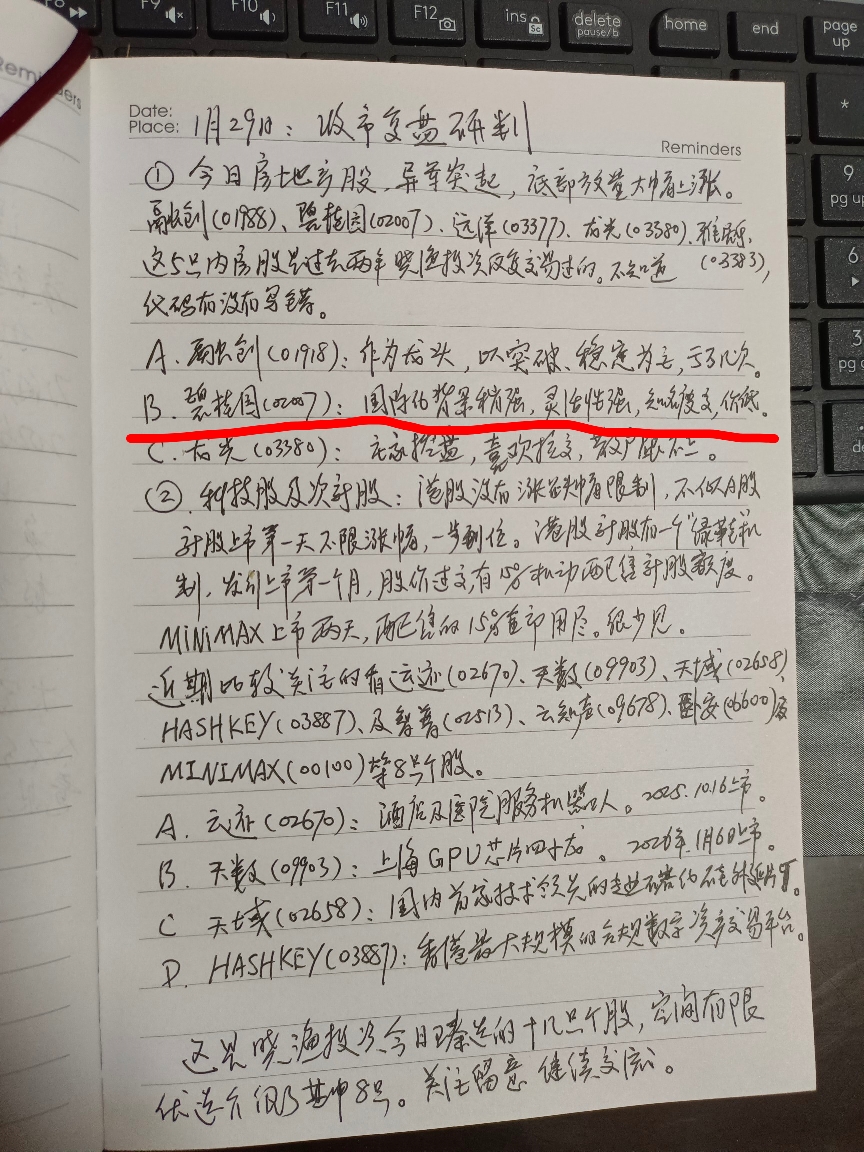 F9
F10
F11
F12
ins
Sc
delete
pause/b
home
end
page
up
*
9
pg up
6
3
Reminders
Date:
Place: 1月29日：收市复盘研判
Reminders
① 今日房地产股，异军突起，底部放量大幅上涨。
融创(01988)、碧桂园(02007)、远洋(03377)、龙光(03380)、雅居乐
这5只内房股是过去两年晓渔投资反复交易过的。不知道 (03383)，
代码有没有写错。
A. 融创(01918)：作为龙头，以突破、稳定为主，亏几次。
B. 碧桂园(02007)：国际化背景稍强，灵活性强，知名度高，价低。
C. 龙光(03380)：庄家控盘，喜欢拉高，散户跟不上。
② 科技股及次新股：港股没有涨跌幅限制，不似A股
新股上市第一天不限涨幅，一步到位。港股新股有一个“绿鞋”机
制，发行上市第一个月，股价过高有15%机动配售新股额度。
MiNiMAX上市两天，配售的15%直即用尽。很少见。
近期比较关注的有云迹(02670)、天数(09903)、天域(02658)、
HASHKEY(03887)、及智普(02513)、云知声(09678)、卧安(06600)及
MINIMAX(00100)等8只个股。
A. 云迹(02670)：酒店及医院服务机器人。2025.10.16上市。
B. 天数(09903)：上海GPU芯片四小龙。2026年1月6日上市。
C 天域(02658)：国内首家技术领先的专业碳化硅外延片
D. HASHKEY(03887)：香港最大规模的合规数字资产交易平台。
这是晓渔投资今日臻选的十几只个股，空间有限
优选介绍其中8只。关注留意 继续交流。